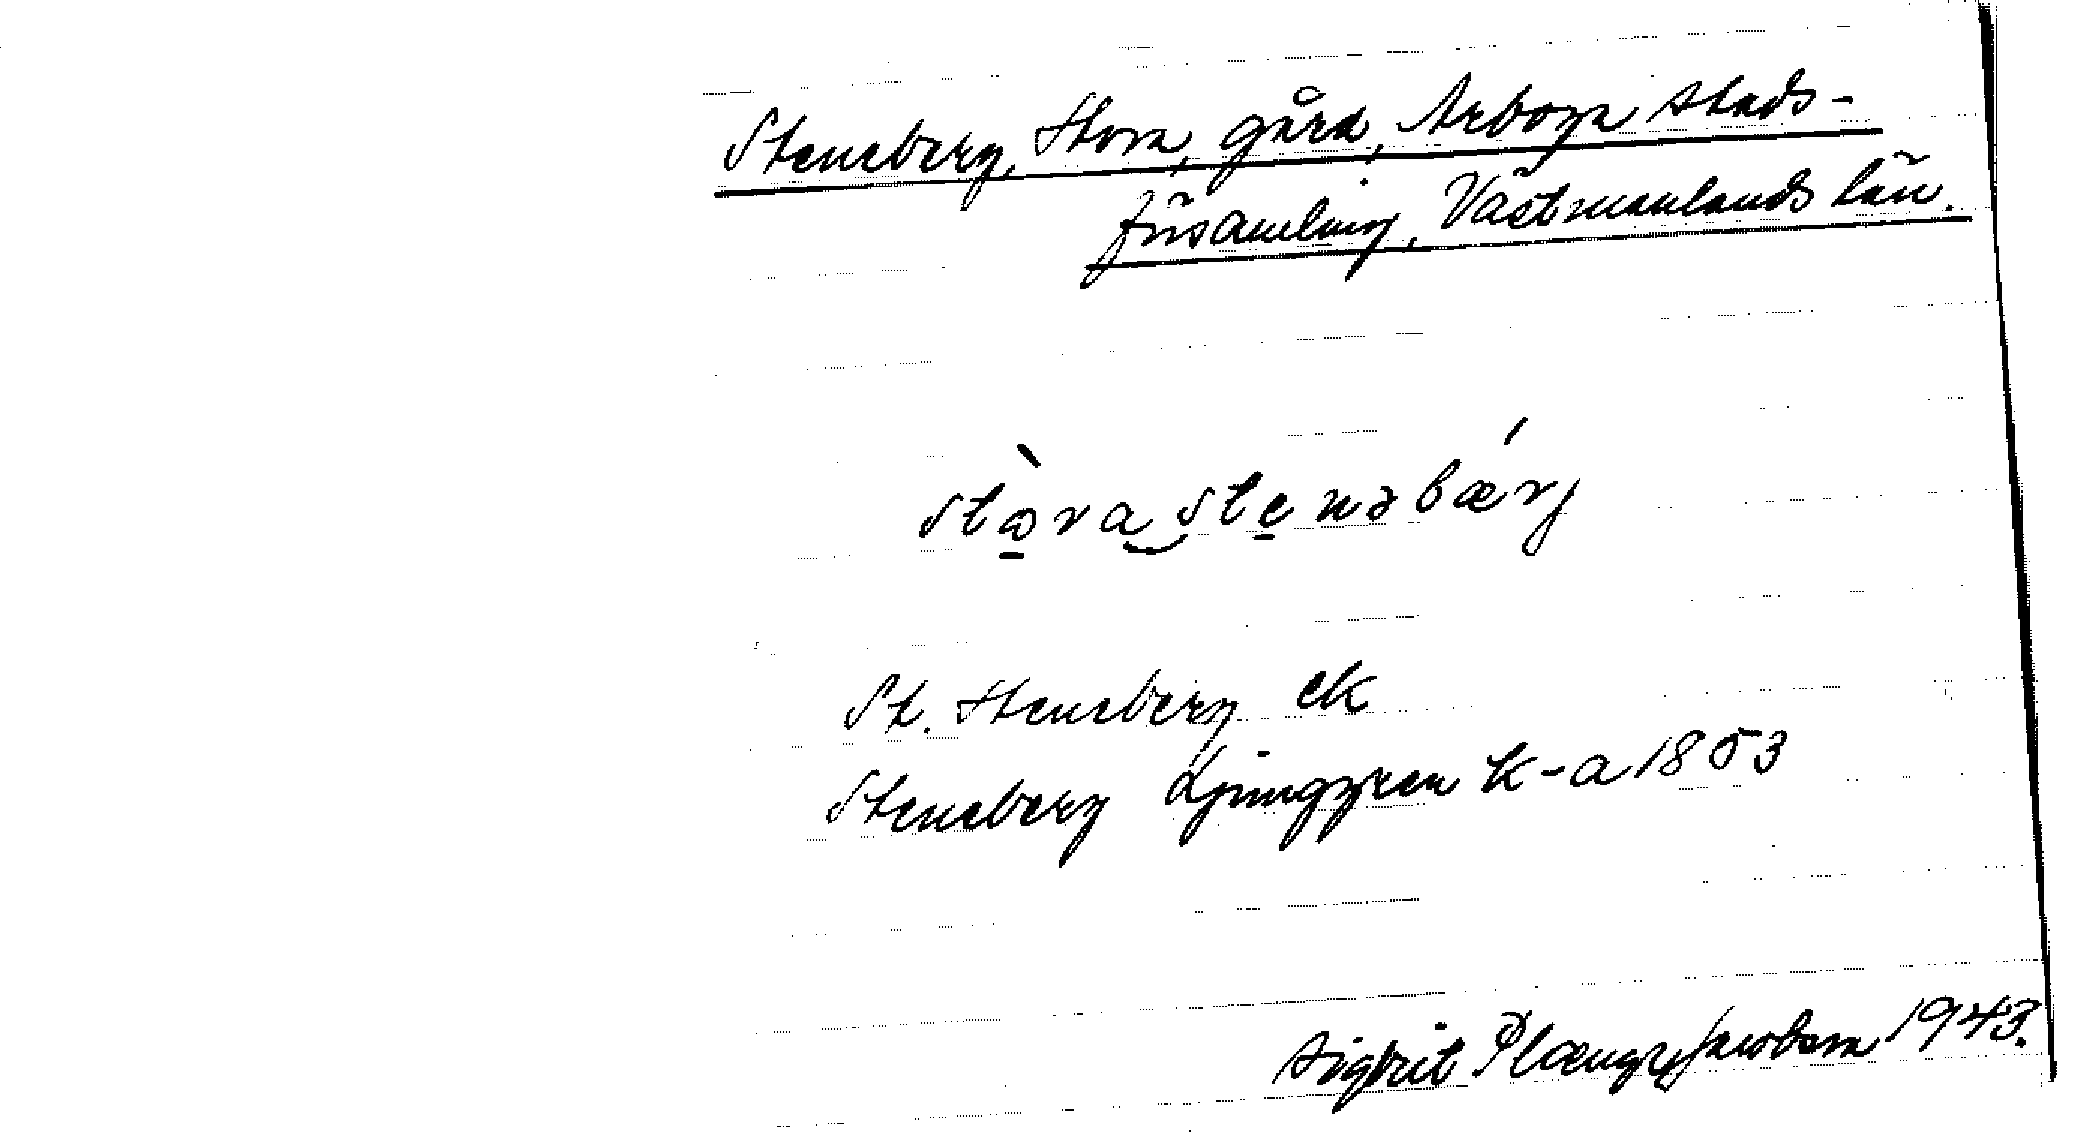 Steneberg, Stora, gård, Arboga stads-
församling, Västmanlands län.
stò̱ra‿ste̱nəbærj́
St. Steneberg ek
Steneberg Ljunggren k-a 1853
Sigbrit Plænge Jacobson 1943.